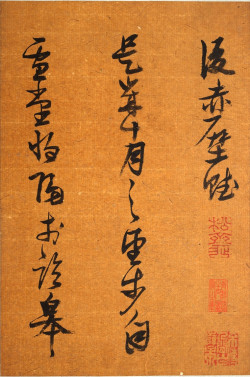 後赤壁賦
是歲十月之望步自
雪堂將歸於臨皋